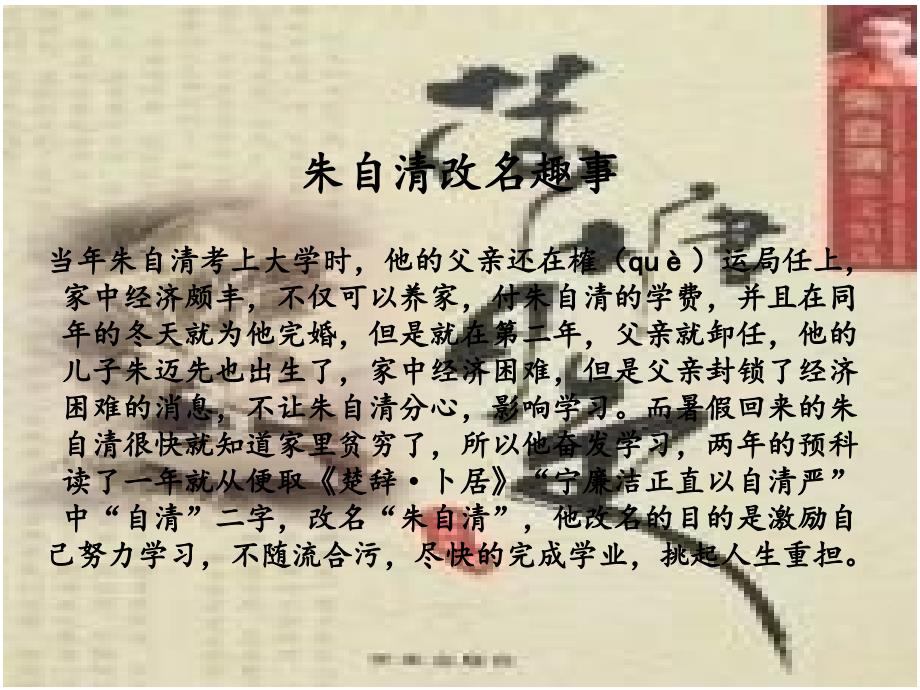 朱自清改名趣事
当年朱自清考上大学时，他的父亲还在榷（què）运局任上，
家中经济颇丰，不仅可以养家，付朱自清的学费，并且在同
年的冬天就为他完婚，但是就在第二年，父亲就卸任，他的
儿子朱迈先也出生了，家中经济困难，但是父亲封锁了经济
困难的消息，不让朱自清分心，影响学习。而暑假回来的朱
自清很快就知道家里贫穷了，所以他奋发学习，两年的预科
读了一年就从便取《楚辞·卜居》“宁廉洁正直以自清严”
中“自清”二字，改名“朱自清”，他改名的目的是激励自
己努力学习，不随流合污，尽快的完成学业，挑起人生重担。